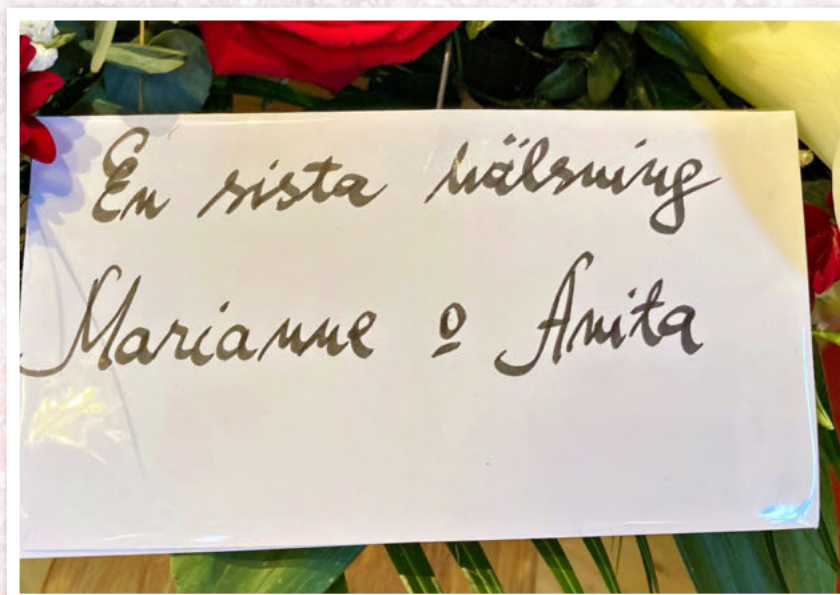 En sista hälsning
Marianne o Anita